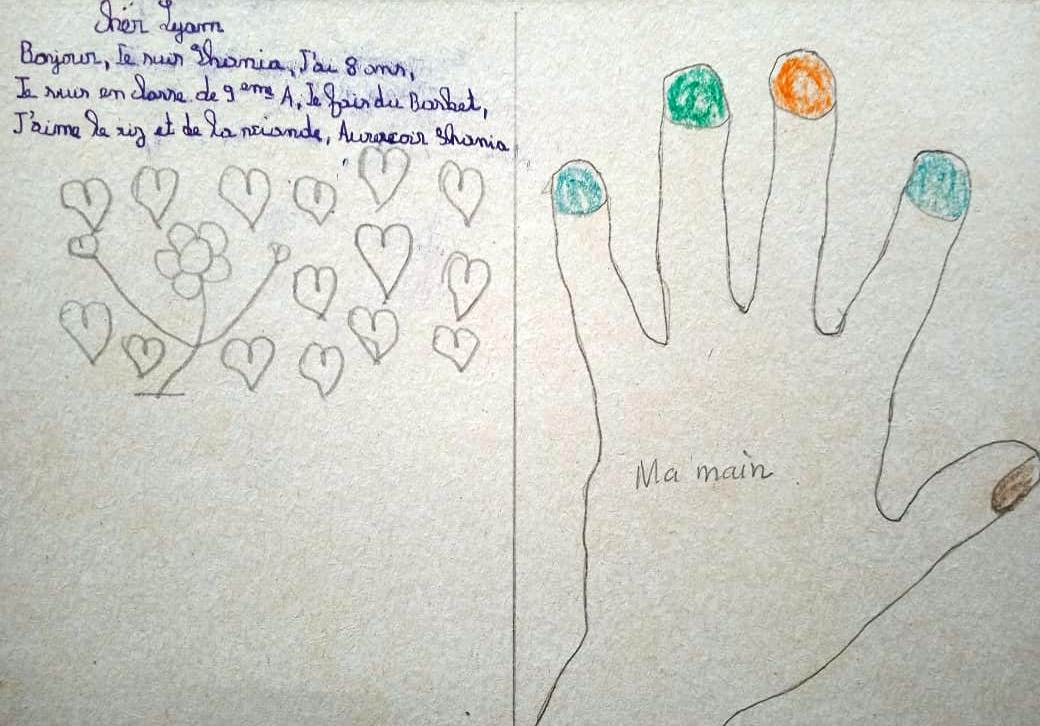 Chèr Lyam
Bonjour, Je suis Shania, J'ai 8 ans,
Je suis en classe de 9ème A, Je fais du Basket,
J'aime le riz et de la viande, Aurevoir Shania
Ma main